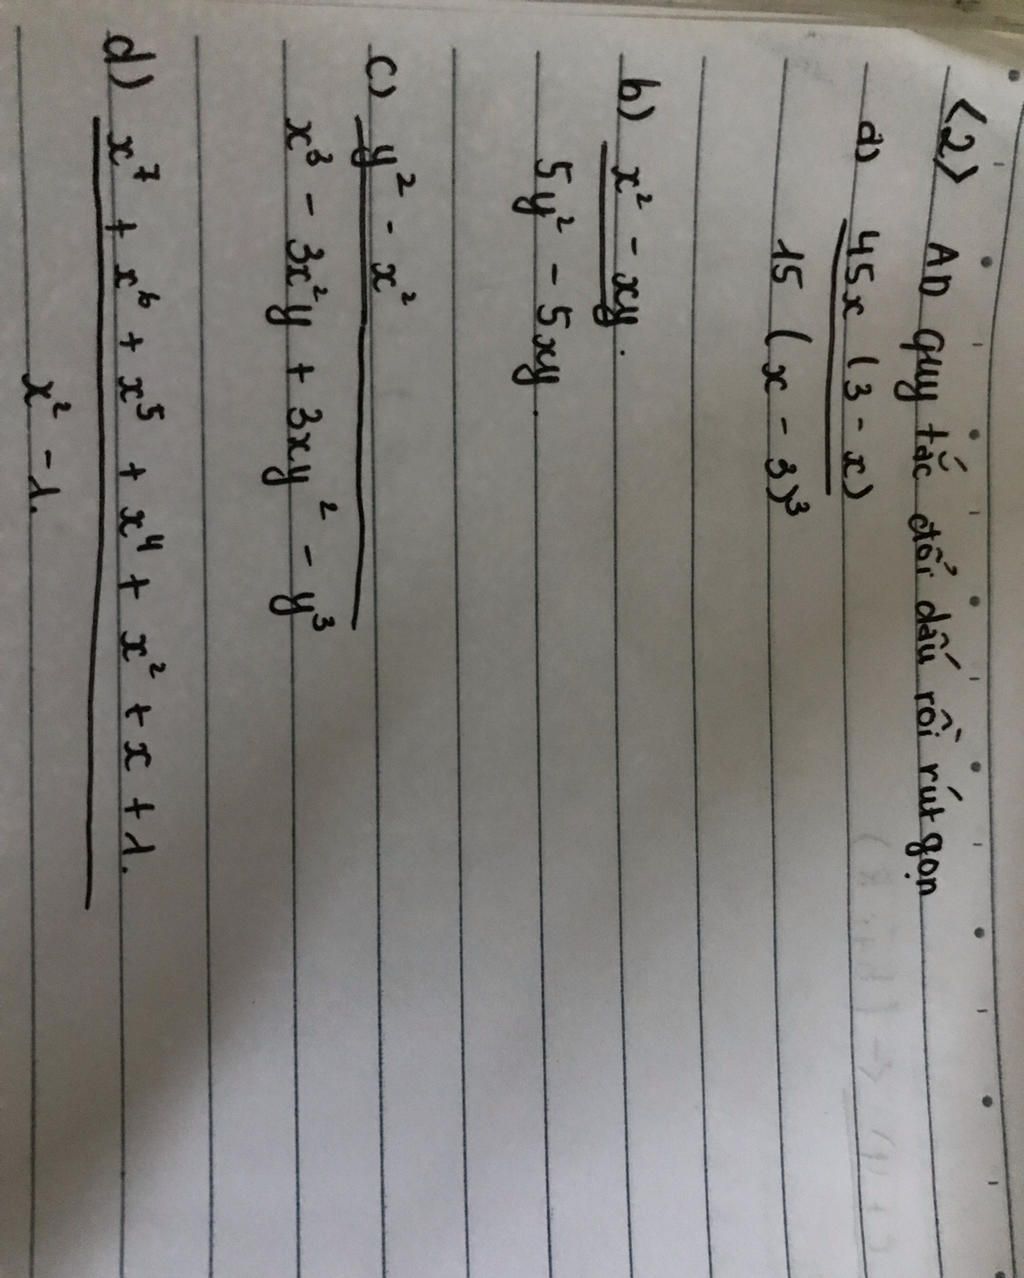 <2> AD quy tắc đổi dấu rồi rút gọn
a) 45x (3 - x)
15 (x - 3)³
b) x² - xy.
5y² - 5xy.
c) y² - x²
x³ - 3x²y + 3xy² - y³
d) x⁷ + x⁶ + x⁵ + x⁴ + x² + x + 1.
x² - 1.